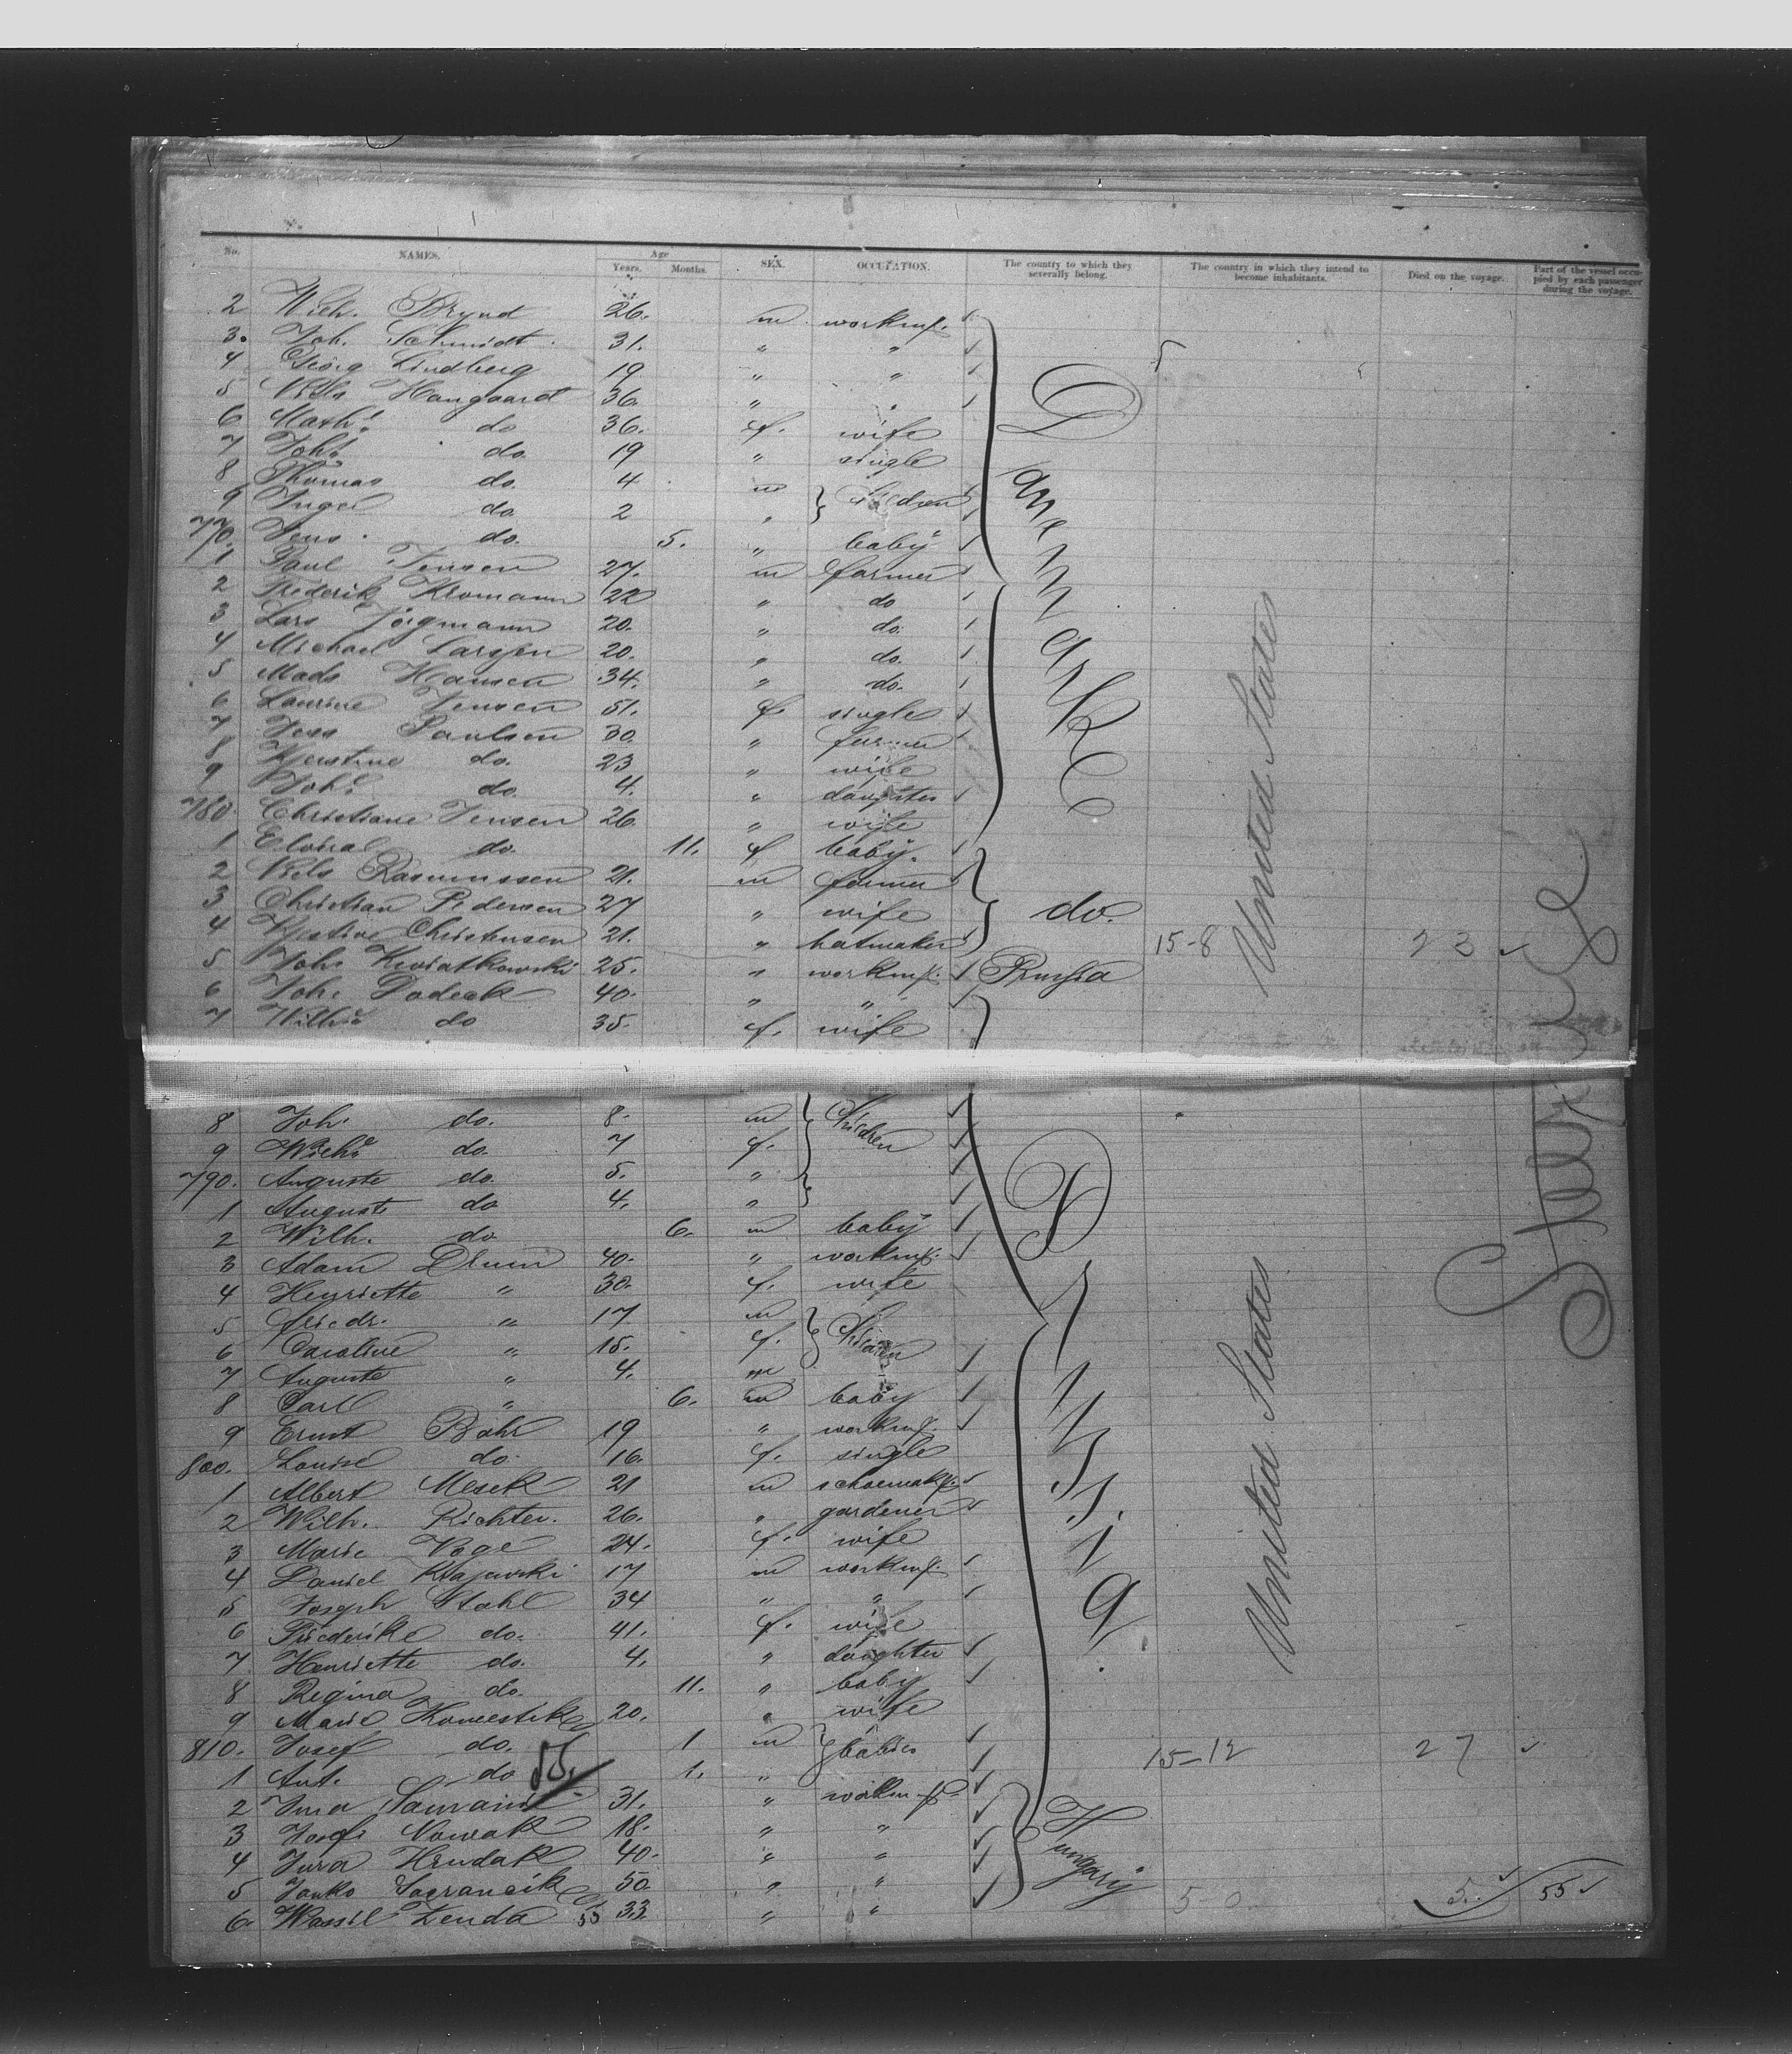 No. NAMES. Age Years. Months. SEX. OCCUPATION. The country to which they severally belong. The country in which they intend to become inhabitants. Died on the voyage. Part of the vessel occupied by each passenger during the voyage.
2 Wilh. Brynd 26. m workmn.
3. Joh. Schmidt 31. " "
4 Georg Lindberg 19 " "
5 Nils Haugaard 36. " "
6 Math. do 36. f. wife
7 Joh. do. 19 " single
8 Thomas do. 4 m Children
9 Inger do. 2 "
770. Jens do. 5. " baby
1 Paul Jensen 27. m farmer
2 Frederik Kromann 22 " do
3 Lars 20. " do.
4 Michael Larsen 20. " do.
5 Mads Hansen 34. " do.
6 Laurine Jensen 51. f. single
7 Jess Paulsen 30. " farmer
8 Kjerstine do. 23 " wife
9 Joh. do. 4. " daughter
780. Christiane Jensen 26. " wife
1 do. 11. f baby.
2 Nils Rasmussen 21. m farmer
3 Christian Pedersen 27 " wife
4 Kjestine Christensen 21. " hatmaker
5 Joh. Kwiatkowski 25. " workmn. Prussia
6 Joh. Dodeck 40. " "
7 Wilh. do 35. f. wife
Danmark
do.
United States
15-8
23
8 Joh. do. 8. m Children
9 Wilh. do. 7 f.
790. Auguste do. 5. "
1 August do. 4. "
2 Wilh. do 6. m baby
3 Adam 40. " workmn.
4 Henriette " 30. f. wife
5 Friedr. " 17 m Children
6 Caroline " 15. f.
7 Auguste " 4. m
8 Carl " 6. m baby
9 Ernst Bohr 19 " workmn.
800. Louise do. 16. f. single
1 Albert Mesek 21 m schoemakr.
2 Wilh. Richter. 26. " gardener
3 Marie Voge 24. f. wife
4 Daniel Krajewski 17 m workmn.
5 Joseph Stahl 34 " "
6 Friederike do. 41. f. wife
7 Henriette do. 4. " daughter
8 Regina do. 11. " baby
9 Marie 20. " wife
810. Josef do. 1 m babies
1 Ant. do 1. "
2 Jura 31. " workmn.
3 Josef Nowak 18. " "
4 Jura Hrudak 40. " "
5 Janko 50. " "
6. Wassil Zenda 55 33. " "
Hungary
United States
15-12
27
5 0
5.
55